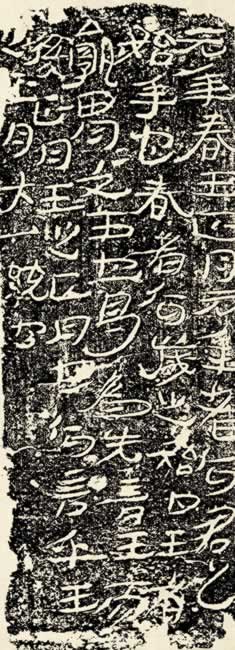 元年春王正月元年者何君之
始年也春者何歲之始也王者
孰謂文王也曷為先言王
後正月王之正月也何言乎王
正月大一統